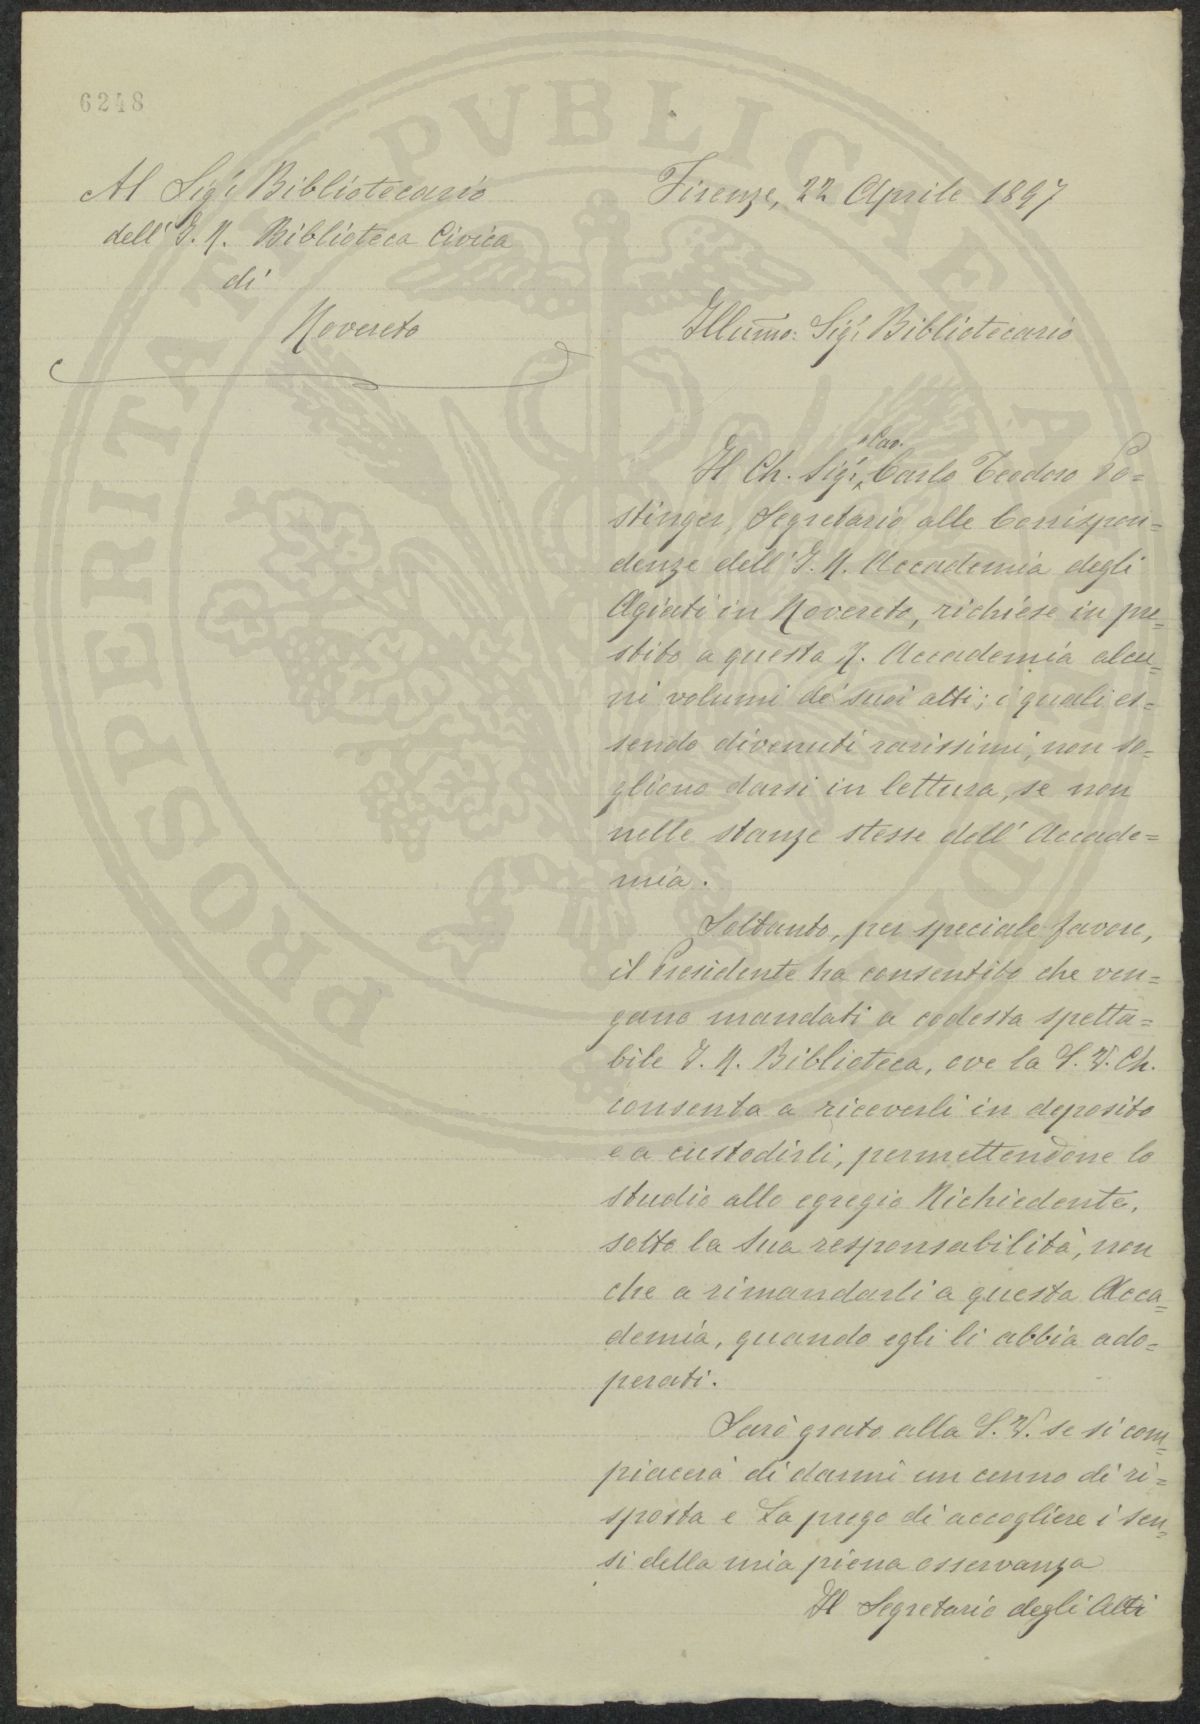 6248
Al Sigr. Bibliotecario
dell' I. R. Biblioteca Civica
di
Rovereto
Firenze, 22 Aprile 1897
Illumo: Sigr. Bibliotecario
Cav.
Il Ch. Sigr. Carlo Teodoro Po=
stinger, Segretario alle Corrispon=
denze dell' I. R. Accademia degli
Agiati in Rovereto, richiese in pre=
stito a questa R. Accademia alcu=
ni volumi de' suoi atti; i quali es=
sendo divenuti rarissimi, non so=
gliono darsi in lettura, se non
nelle stanze stesse dell' Accade=
mia.
Soltanto, per speciale favore,
il Presidente ha consentito che ven=
gano mandati a codesta spetta=
bile I. R. Biblioteca, ove la S. V. Ch.
consenta a riceverli in deposito
e a custodirli, permettendone lo
studio allo egregio Richiedente,
sotto la Sua responsabilità, non
che a rimandarli a questa Acca=
demia, quando egli li abbia ado=
perati.
Sarò grato alla S. V. se si com=
piacerà di darmi un cenno di ri=
sposta e La prego di accogliere i sen=
si della mia piena osservanza
Il Segretario degli Atti
PROSPERITATI PVBLICAE AVGENDAE